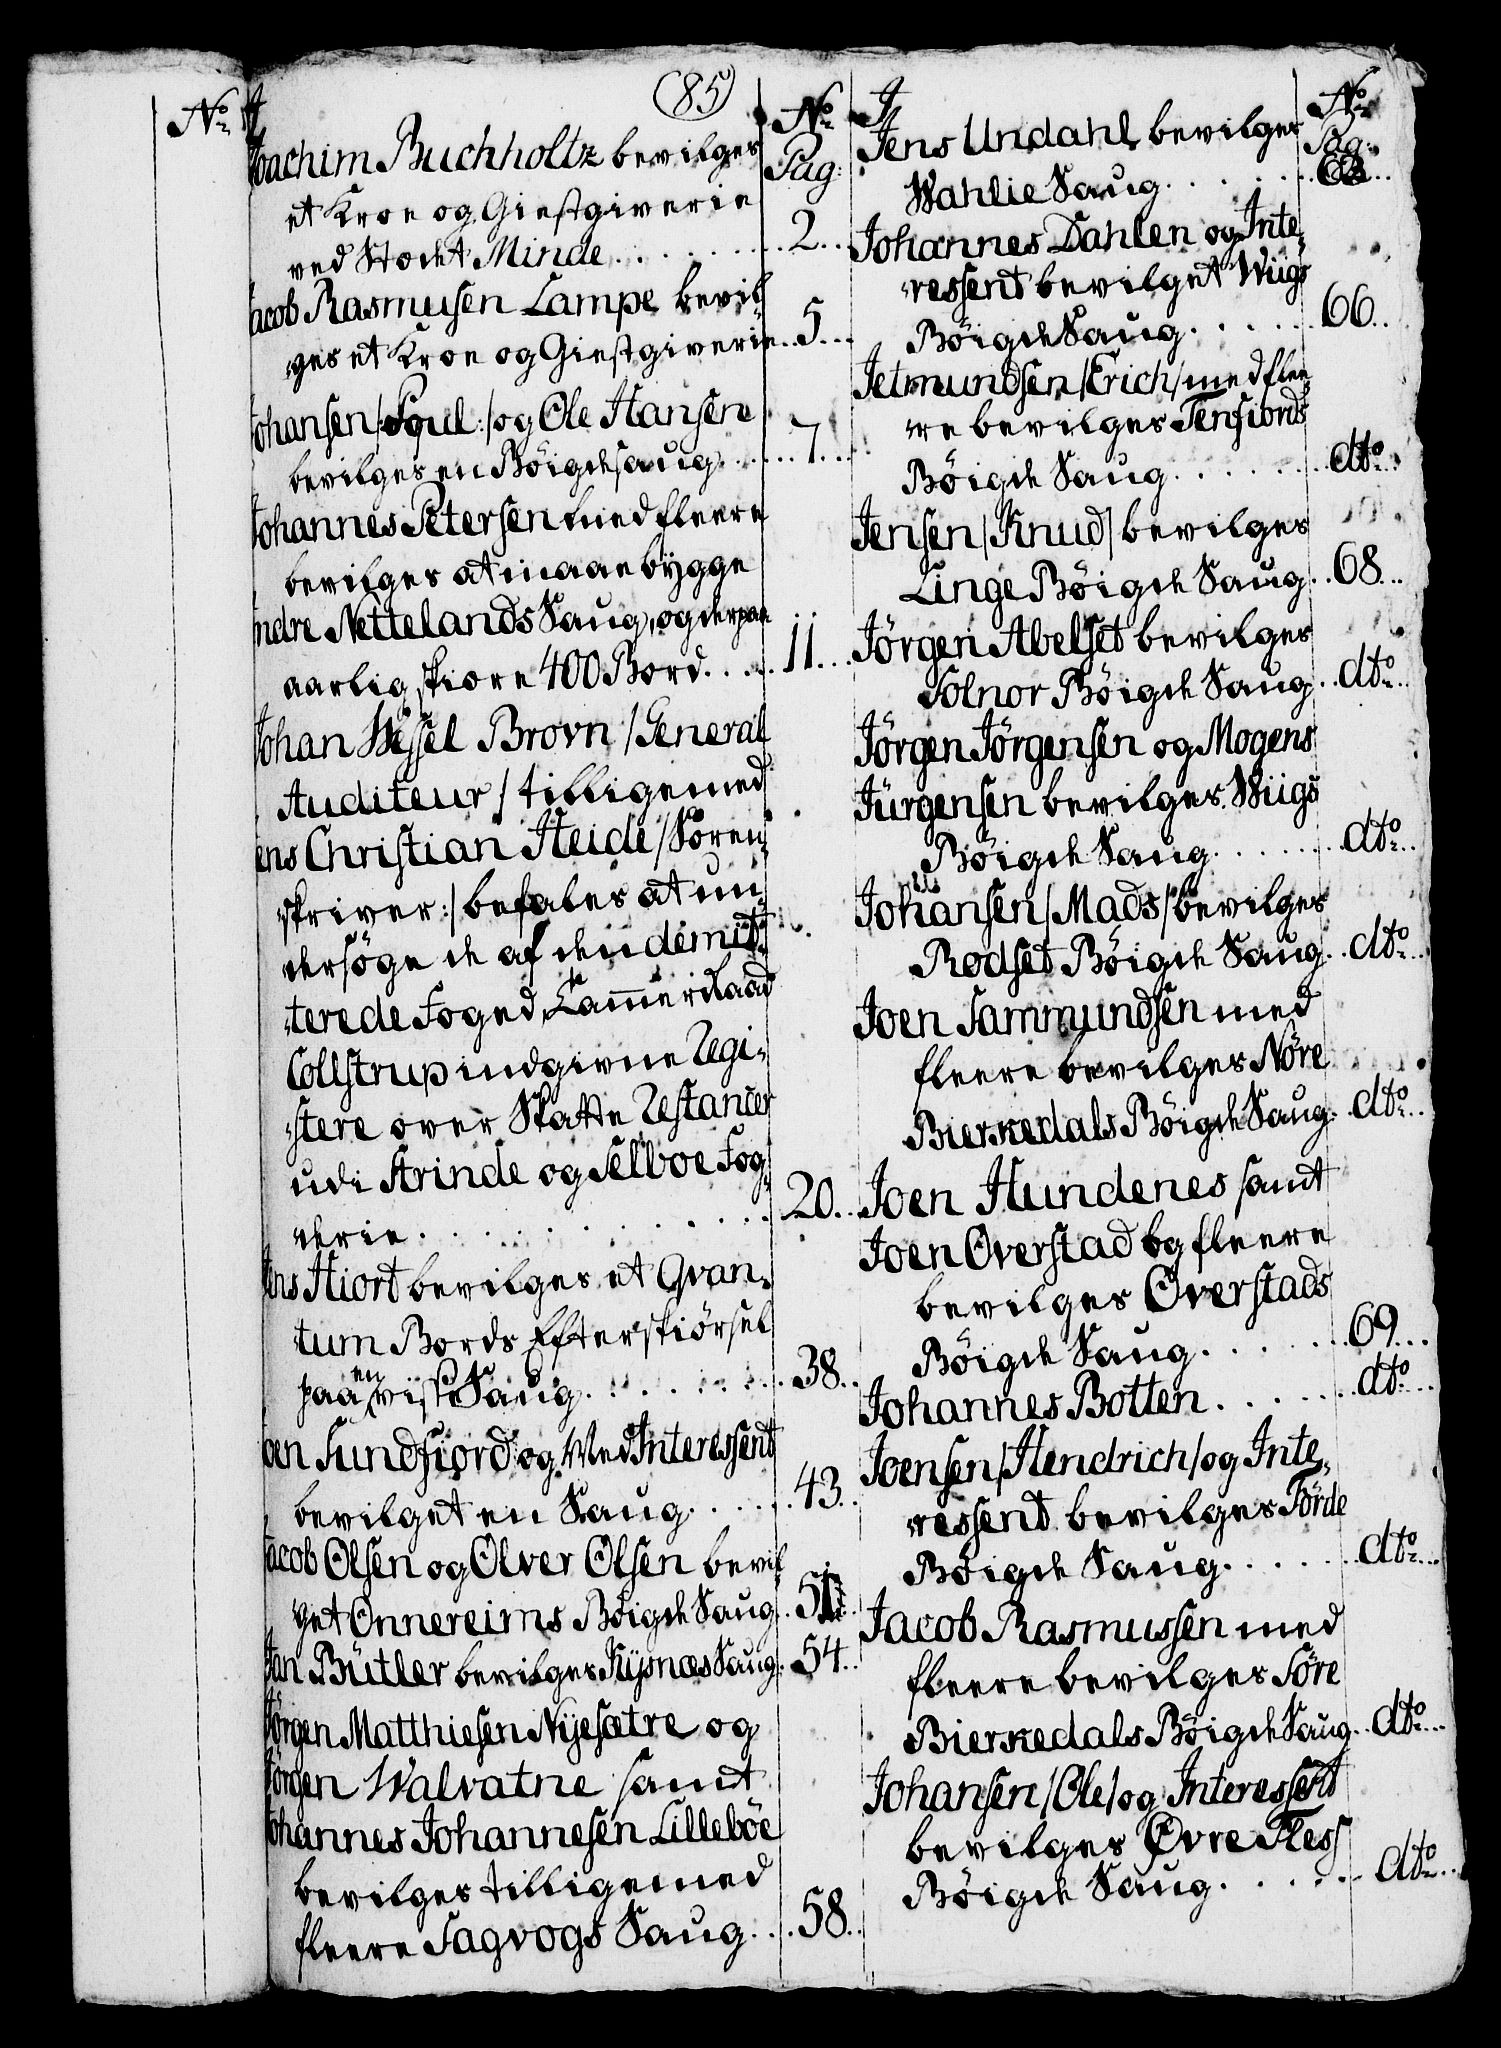 (85)
No
J
No
Pag:
Joachim Buchholtz bevilges
et Kroe og Giestgiverie
ved Stochet Minde . . . . . . . 2 . .
Jacob Rasmusen Lampe bevil„
„ges et Kroe og Giestgiverie . . 5 . .
Johansen /: Poul :/ og Ole Hansen
bevilges en Böigdesaug . . . . 7 . . .
Johannes Petersen med fleere
bevilges at maae bygge
indre Nettelands Saug, og derpaa
aarlig skiøre 400 Bord . . . . 11 . . .
Johan Wessel Brovn / General
Auditeur / tilligemed
Jens Christian Heide / Soren„
„skriver :/ befales at un„
„dersöge de af den demit„
„terede Foged, Cam̅erRaad
Collstrup indgivne Regi„
„stere over Skatte Restancer
udi Strinde og Selboe Fog„
„derie . . . . . . . . . . . 20 . .
Jens Hiort bevilges et Qvan„
„tum Bords Efterskiörsel
paa en vis Saug . . . . . . . . 38 . .
Joen Sundfiord og Med Interessent
bevilget en Saug . . . . . . 43 . .
Jacob Olsen og Olver Olsen bevil„
„get Onnereims Böigde Saug . . 51 . .
Jan Bütler bevilges Rijsnæs Saug . 54 . .
Jörgen Matthiesen Nijesætre og
Jörgen Walvatne samt
Johannes Johannesen Lilleböe
bevilges tilligemed
fleere Sagvogs Saug . . . 58 . .
J
No
Pag:
Jens Undahl bevilges
Wahlie Saug . . . . . .
Johannes Dahlen og Inte„
„ressent bevilget Wiigs
Böigde Saug . . . . . . 66 . .
Jetmundsen / Erich / med flee„
„re bevilges Tenfiords
Böigde Saug . . . . . . . dto . .
Jensen / Knud / bevilges
Linge Böigde Saug . . 68 . . .
Jörgen Abelset bevilges
Solnor Böigde Saug . . dto . .
Jörgen Jörgensen og Mogens
Jürgensen bevilges Wiigs
Böigde Saug . . . . . . dto . .
Johansen / Mads / bevilges
Rodset Böigde Saug . . dto . .
Joen Sammundsen med
fleere bevilges Nöre
Bierkedals Böigde Saug . . dto . .
Joen Hundenes samt
Joen Overstad og fleere
bevilges Overstads
Böigde Saug . . . . . . . 69 . . .
Johannes Botten . . . . . . . dto . . .
Joensen / Hendrich / og Inte„
„ressent bevilges Förde
Böigde Saug . . . . . . . dto . . .
Jacob Rasmussen med
fleere bevilges Söre
Bierkedals Böigde Saug . . dto . . .
Johansen / Ole / og Interessent
bevilges Øvre Fless
Böigde Saug . . . . . . . dto . . .